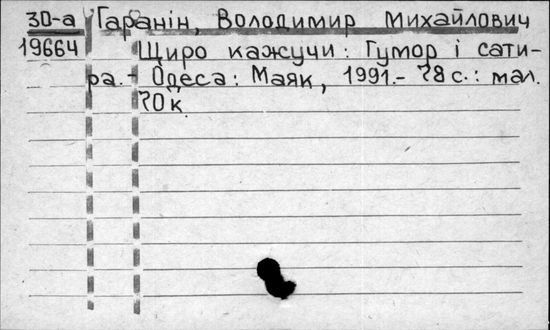 30-а Гаранін, Володимир Михайлович
19664 Щиро кажучи: Гумор і сати-
ра.- Одеса: Маяк, 1991.- 78 с.: мал.
70 к.